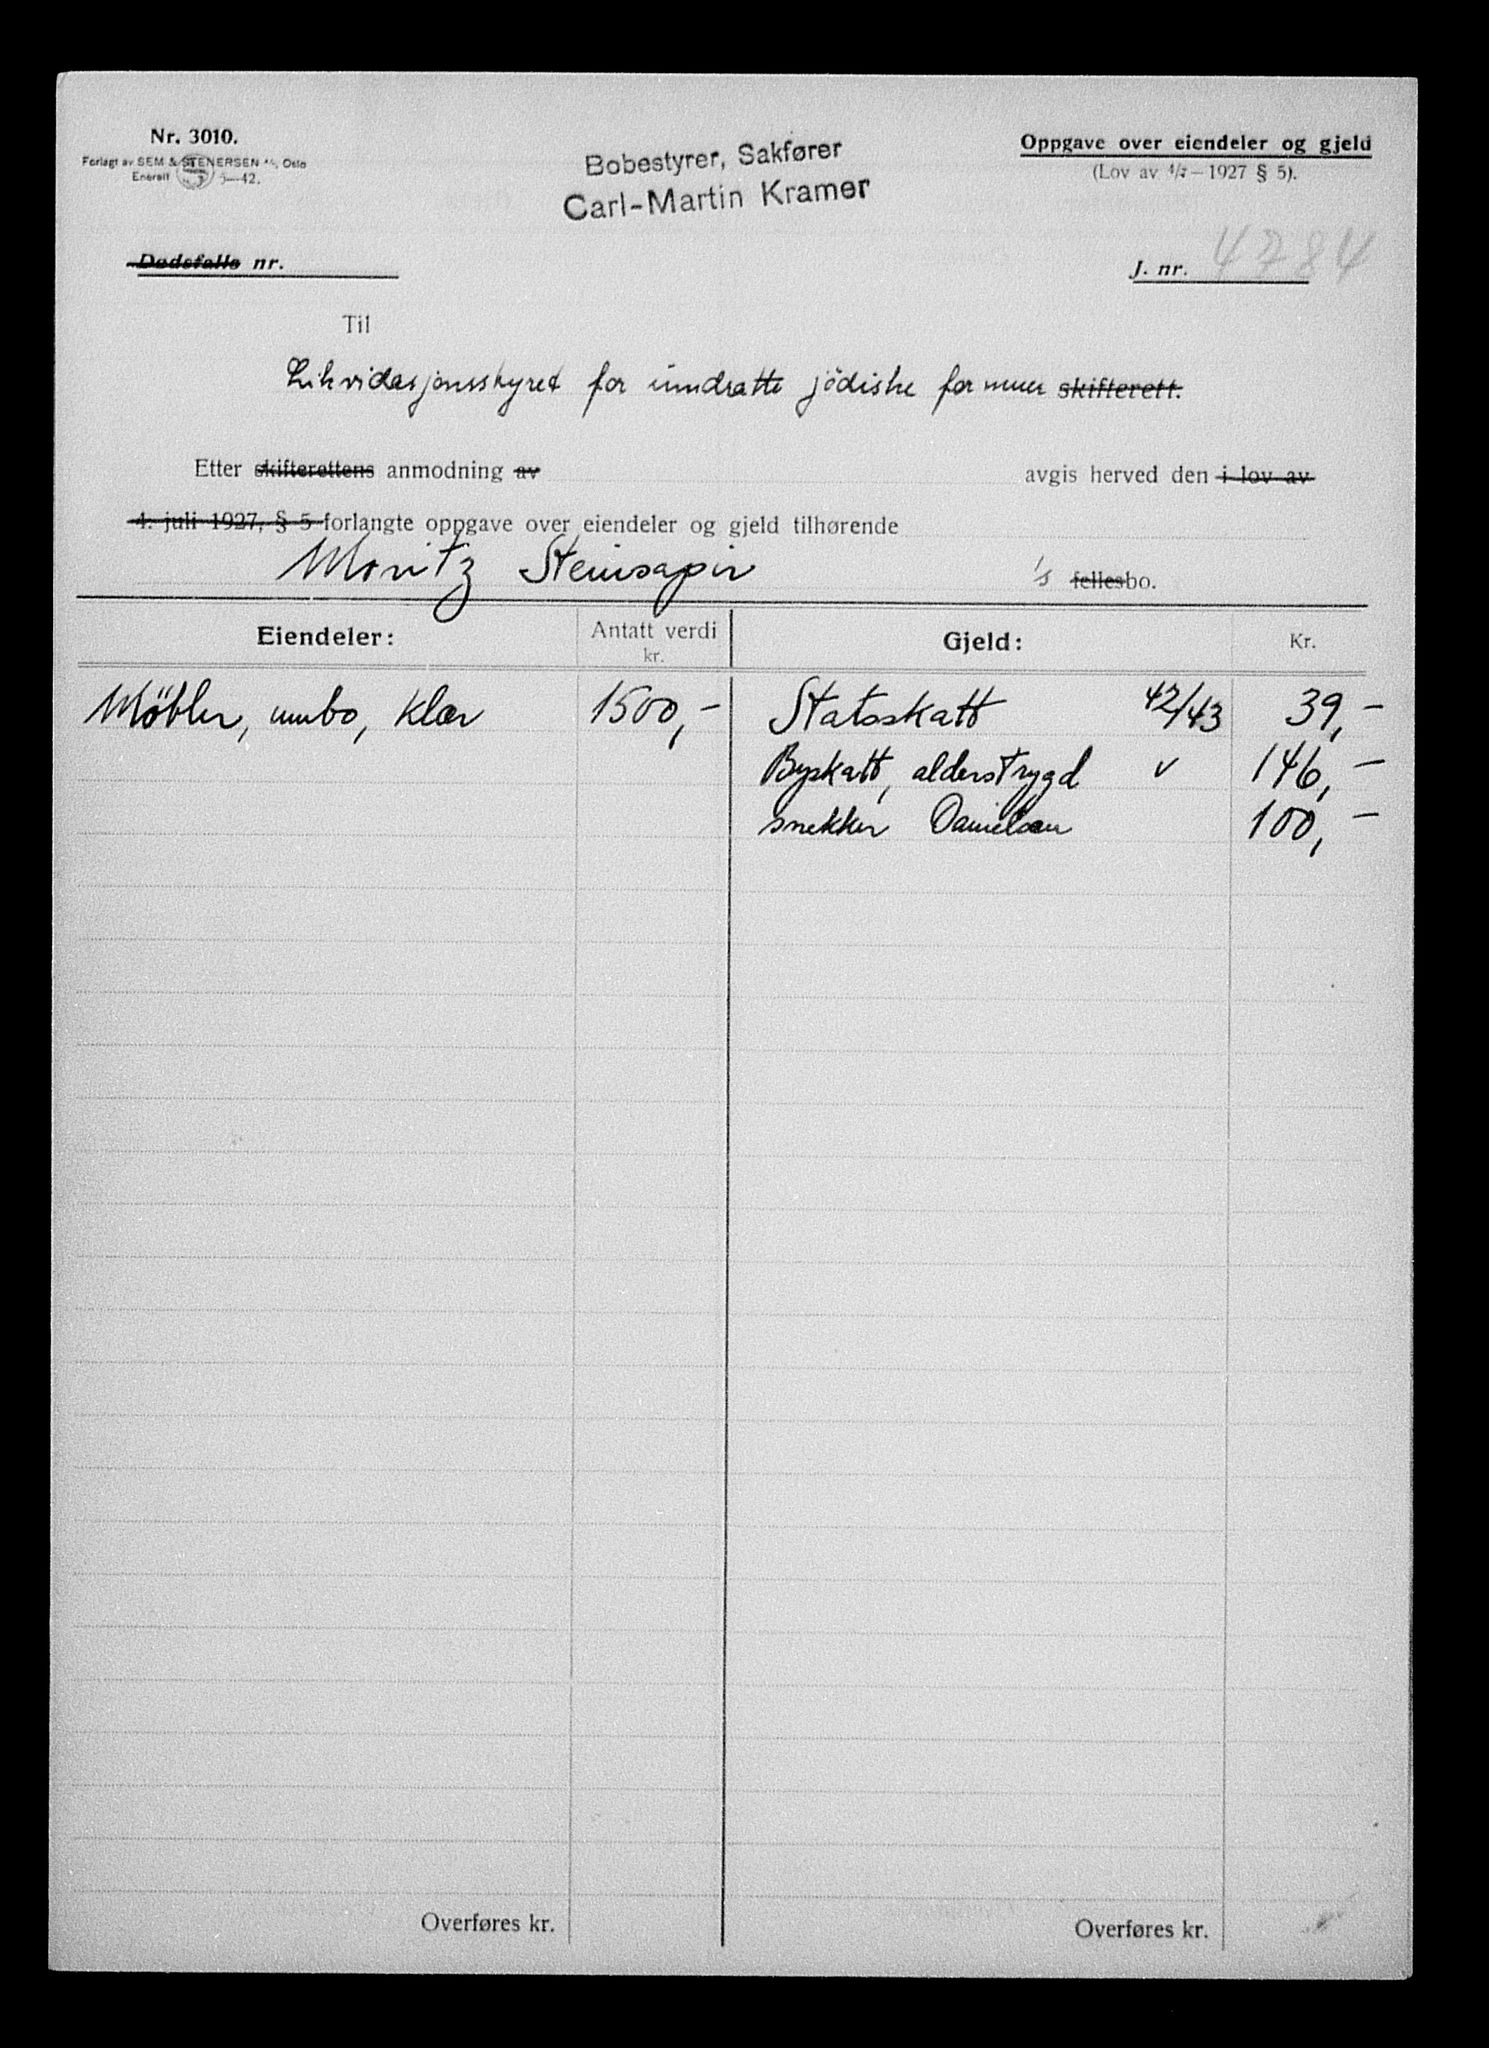 Nr. 3010.
Forlagt av SEM & STENERSEN A/S, Oslo
Enerett 5—42.
Bobestyrer, Sakfører
Carl-Martin Kramer
Oppgave over eiendeler og gjeld
(Lov av 4/7—1927 § 5).
Dødsfalls nr.
J. nr. 4784
Til
Likvidasjonsstyret for inndratte jödiske formuer skifterett.
Etter skifterettens anmodning av avgis herved den i lov av
4. juli 1927, § 5 forlangte oppgave over eiendeler og gjeld tilhørende
Moritz Steinsapir 's fellesbo.
Eiendeler: Antatt verdi kr. Gjeld: Kr.
Möbler, innbo, klær 1500,- Statsskatt 42/43 39,-
Byskatt, alderstrygd v 146,-
snekker Danielsen 100,-
Overføres kr. Overføres kr.